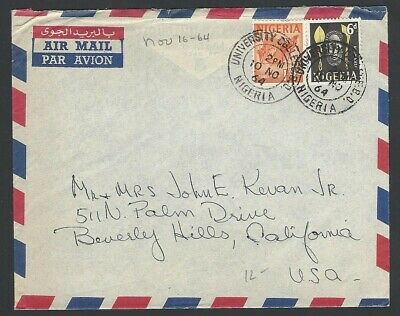 بالبريد الجوى
AIR MAIL
PAR AVION
nov 16-64
NIGERIA
6d
NIGERIA
UNIVERSITY
2PM
10 NO
64
NIGERIA
NO
64
NIGERIA
Mr + MRS John E. Kevan Jr.
511 N. Palm Drive
Beverly Hills, California
12-
USA-